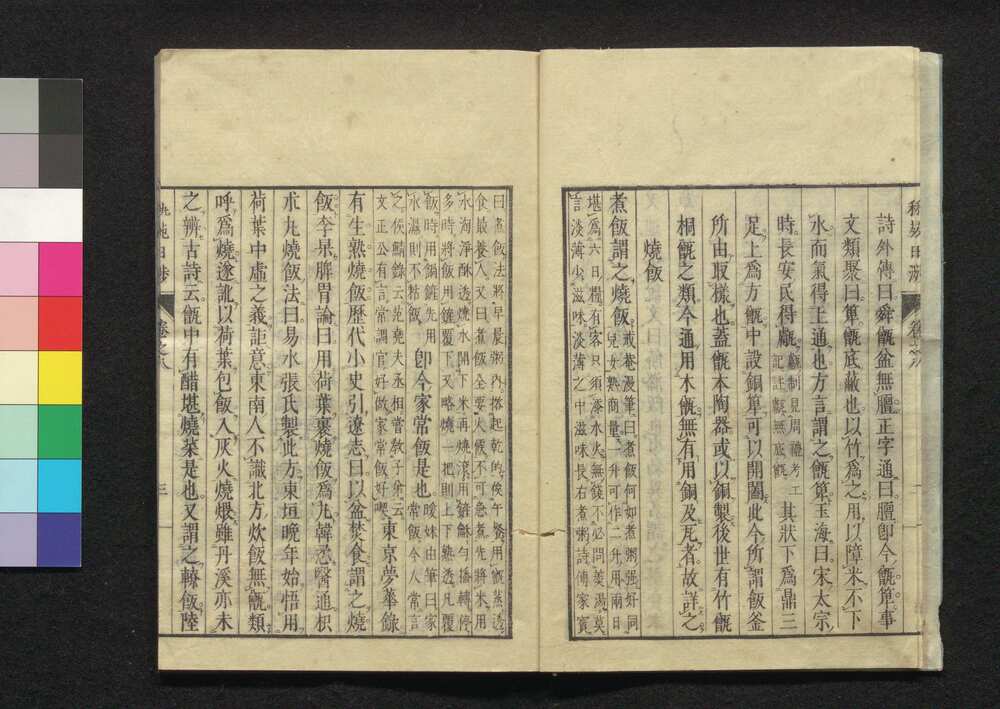 詩外傳曰舜甑盆無膻正字通曰膻卽今甑箄事
文類聚曰箄甑底蔽也以竹爲之用以障米不下
水而氣得上通也方言謂之甑第玉海曰宋太宗
時長安民得甗甗制見周禮考工記註甗無底甑其狀下爲鼎三
足上爲方甑中設銅箄可以開闔此今所謂飯釜
所由取樣也蓋甑本陶器或以銅製後世有竹甑
桐甑之類今通用木甑無有用銅及瓦者故詳之
燒飯
煮飯謂之燒飯戒菴漫筆曰煮飯何如煮粥强好同兒女熟商量一升可作二升用兩日
堪爲六日糧有客只須添水火無錢不必問羹湯莫
言淡薄少滋味淡薄之中滋味長右煮粥詩傳家寳
曰煮飯法將早晨粥內撈起乾的俟午餐用甑蒸透
食最養人又曰煮飯全要火候不可急煮先將米用
水淘淨酥透燒水開下米再燒滾用鏟穌勻播轉停
多時將飯用鏟覆下又略燒一把則上下熟透凡覆
飯時用鍋鏟先用水濕則不粘飯卽今家常飯是也曖姝由筆曰家常飯今人常言
之侯鯖錄云范堯夫丞相嘗敎子弟云文正公有言常調官好做家常飯好喫東京夢華錄
有生熟燒飯歷代小史引遼志曰以盆焚食謂之燒
飯今杲脾胃論曰用荷葉裹燒飯爲丸韓悉醫通枳
朮丸燒飯法曰易水張氏製此方東垣晚年始悟用
荷葉中虛之義詎意東南人不識北方炊飯無甑類
呼爲燒遂訛以荷葉包飯入灰火燒煨雖丹溪亦未
之辨古詩云甑中有醋堪燒菜是也又謂之轑飯陸
卷之八
三